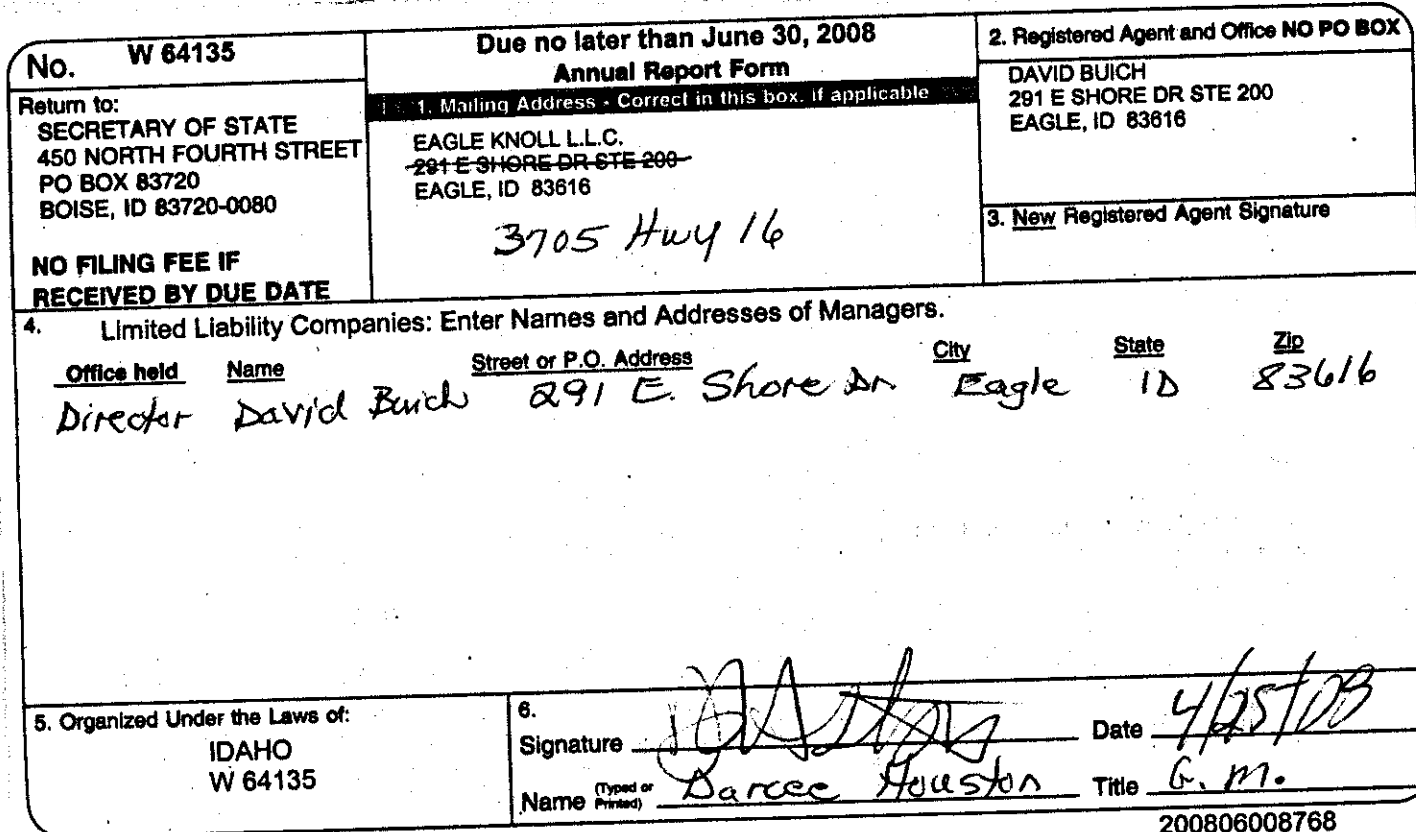 No. W 64135
Return to:
SECRETARY OF STATE
450 NORTH FOURTH STREET
PO BOX 83720
BOISE, ID 83720-0080
NO FILING FEE IF
RECEIVED BY DUE DATE
Due no later than June 30, 2008
Annual Report Form
1. Mailing Address - Correct in this box, if applicable
EAGLE KNOLL L.L.C.
291 E SHORE DR STE 200
EAGLE, ID 83616
3705 Hwy 16
2. Registered Agent and Office NO PO BOX
DAVID BUICH
291 E SHORE DR STE 200
EAGLE, ID 83616
3. New Registered Agent Signature
4. Limited Liability Companies: Enter Names and Addresses of Managers.
Office held Name Street or P.O. Address City State Zip
Director David Buich 291 E. Shore Dr Eagle ID 83616
5. Organized Under the Laws of:
IDAHO
W 64135
6.
Signature Date 4/25/08
Name (Typed or Printed) Darcee Houston Title G. M.
200806008768